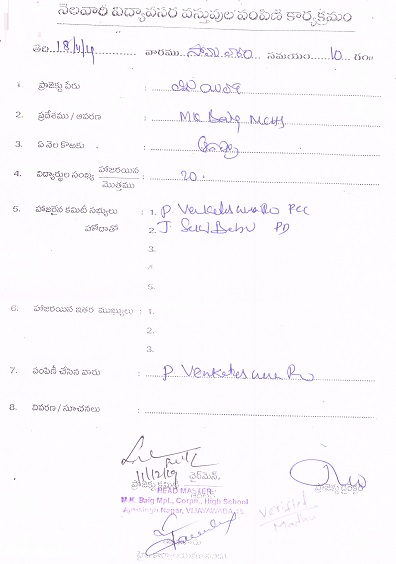 నెలవారి విద్యావసర వస్తువుల పంపిణి కార్యక్రమం
తేది వారము సోమవారం సమయం 10 గం॥
1. ప్రాజెక్టు పేరు :
2. ప్రదేశము / ఆవరణ : MK Baig MCHS
3. ఏ నెల కొఱకు :
4. విద్యార్థుల సంఖ్య హాజరయిన / మొత్తము : 20.
5. హాజరైన కమిటీ సభ్యులు : 1. P. Venkateswara Rao PCC
హోదాతో 2. J PD
3.
4.
5.
6. హాజరయిన ఇతర ముఖ్యులు : 1.
2.
3.
7. పంపిణీ చేసిన వారు : P Venkateswara Rao
8. వివరణ / సూచనలు :
11/12/19 ఛైర్మెన్,
ప్రాజెక్టు కమిటి
ప్రాజెక్టు డైరెక్టర్
HEAD MASTER
M.K. Baig Mpl., Corpn., High School
Ajithsingh Nagar, VIJAYAWADA-15.
Verified
Madhu